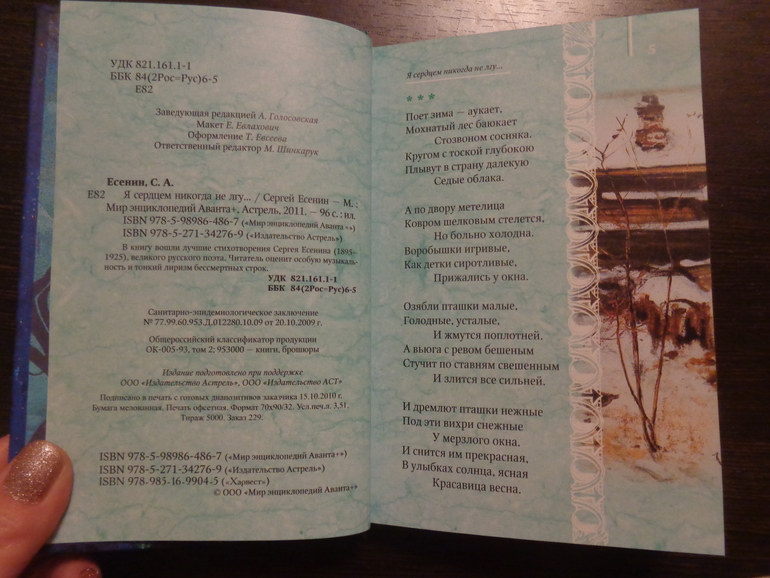 УДК 821.161.1-1
ББК 84(2Рос=Рус)6-5
Е82
Заведующая редакцией А. Голосовская
Макет Е. Евлахович
Оформление Т. Евсеева
Ответственный редактор М. Шинкарук
Есенин, С. А.
Е82 Я сердцем никогда не лгу... / Сергей Есенин — М. :
Мир энциклопедий Аванта+, Астрель, 2011. — 96 с. : ил.
ISBN 978-5-98986-486-7 («Мир энциклопедий Аванта+»)
ISBN 978-5-271-34276-9 («Издательство Астрель»)
В книгу вошли лучшие стихотворения Сергея Есенина (1895-
1925), великого русского поэта. Читатель оценит особую музыкаль-
ность и тонкий лиризм бессмертных строк.
УДК 821.161.1-1
ББК 84(2Рос=Рус)6-5
Санитарно-эпидемиологическое заключение
№ 77.99.60.953.Д.012280.10.09 от 20.10.2009 г.
Общероссийский классификатор продукции
ОК-005-93, том 2; 953000 — книги, брошюры
Издание подготовлено при поддержке
ООО «Издательство Астрель», ООО «Издательство АСТ»
Подписано в печать с готовых диапозитивов заказчика 15.10.2010 г.
Бумага мелованная. Печать офсетная. Формат 70х90/32. Усл.печ.л. 3,51.
Тираж 5000. Заказ 229.
ISBN 978-5-98986-486-7 («Мир энциклопедий Аванта+»)
ISBN 978-5-271-34276-9 («Издательство Астрель»)
ISBN 978-985-16-9904-5 («Харвест»)
© ООО «Мир энциклопедий Аванта+»
5
Я сердцем никогда не лгу...
* * *
Поет зима — аукает,
Мохнатый лес баюкает
Стозвоном сосняка.
Кругом с тоской глубокою
Плывут в страну далекую
Седые облака.
А по двору метелица
Ковром шелковым стелется,
Но больно холодна.
Воробышки игривые,
Как детки сиротливые,
Прижались у окна.
Озябли пташки малые,
Голодные, усталые,
И жмутся поплотней.
А вьюга с ревом бешеным
Стучит по ставням свешенным
И злится все сильней.
И дремлют пташки нежные
Под эти вихри снежные
У мерзлого окна.
И снится им прекрасная,
В улыбках солнца, ясная
Красавица весна.